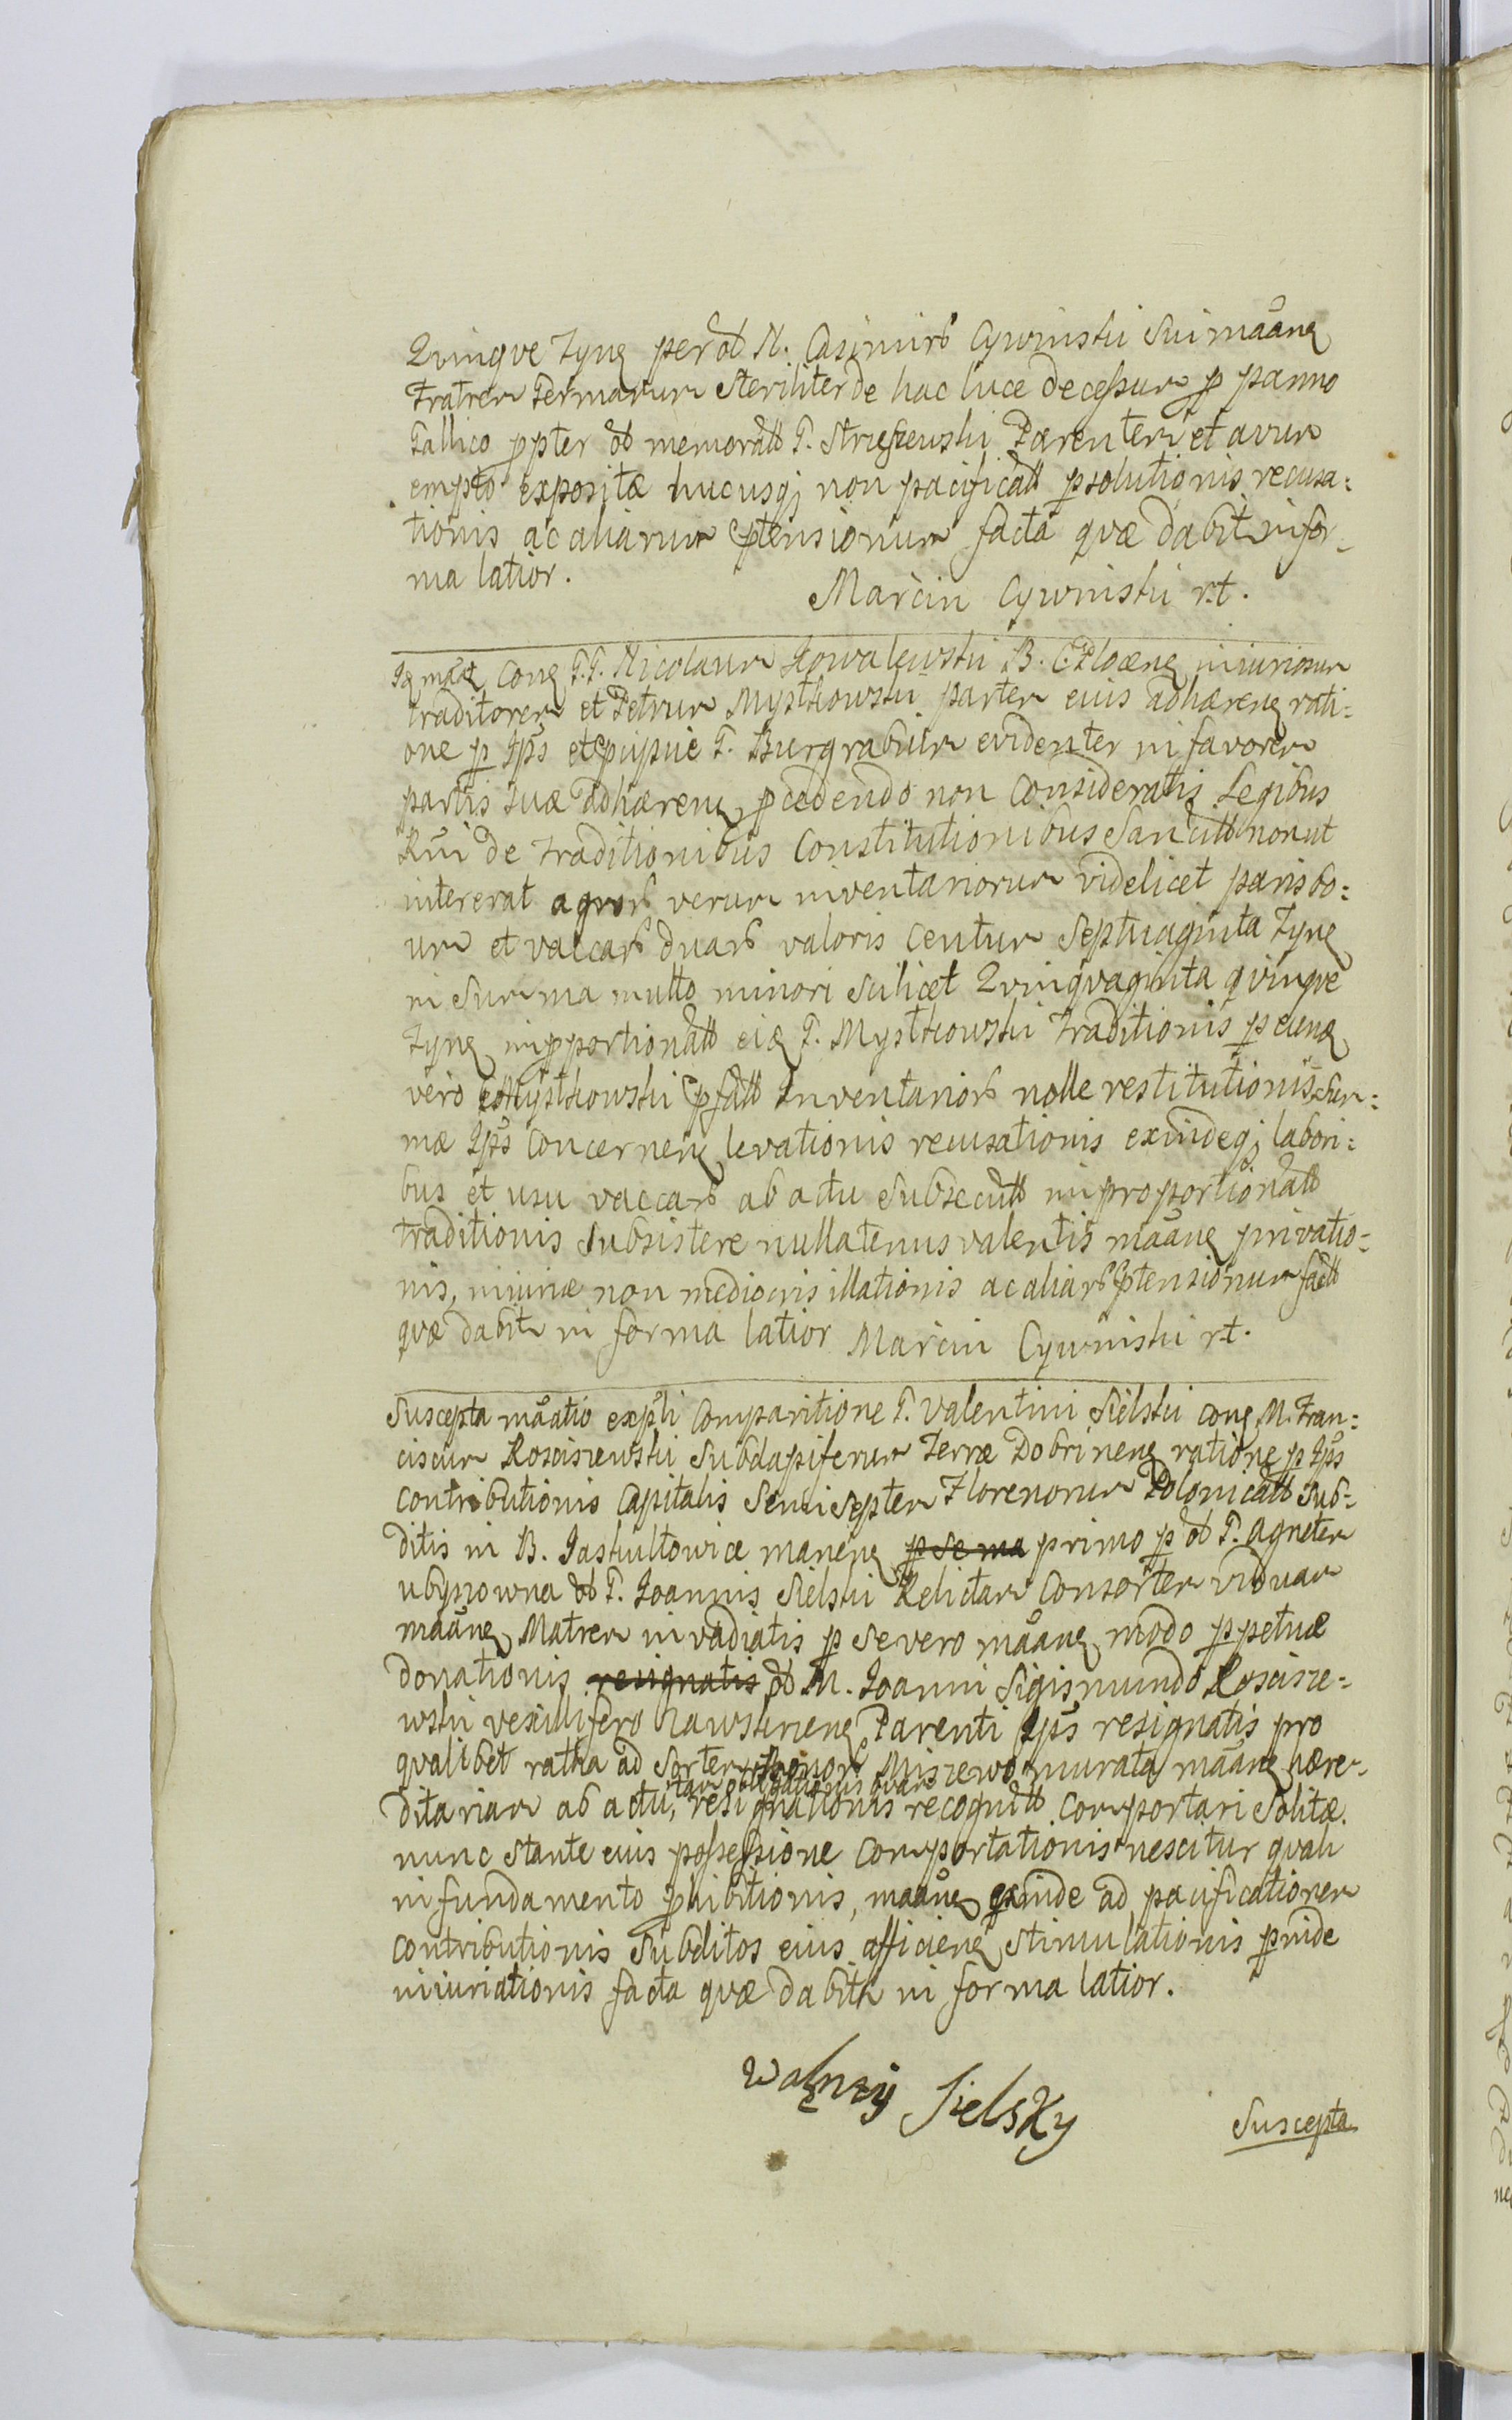 Qvinqve Tyng per ōd N. Casimirū Cywinski sui māāng
Fratrem Germanum steriliter de hac luce decessum p panno
Gallico ppter ōd memorātt G. Strzeszewski Parentem et avum
empto exposita hucusqȝ non pacificātt psolutionis recusa:
tionis ac aliarum Ptensionum facta qvæ dabitr in for-
ma latior.
Marcin Cywinski r.t.
Iq māæ Cong G.G. Nicolaum Kowalewski B. C. Plocæng iniuriosum
traditorem et Petrum Mystkowski partem eius adhæreng rati:
one p Ips et Pcipue G. Burgrabium evidenter in favorem
partis suæ adhæreng pcedendo non Consideratis Legibus
Rni de traditionibus Constitutionibus Sancitt non ut
intererat agrorū verum inventariorum videlicet paris bo:
um et vaccarū duarū valoris Centum Septuaginta Tyng
in Summa multo minori scilicet Qvinqvaginta qvinqve
Tyng inpportionātt eiq G. Mystkowski traditionis p eung
vero Mystkowski Pfātt Inventariorū nolle restitutionis Sum:
mæ Ips Concerneng levationis recusationis exindeqȝ labori:
bus et usu vaccarū ab actu subsecutt inproportionātt
traditionis subsistere nullatenus valentis māāng privatio:
nis, iniuriæ non mediocris illationis ac aliarū Ptensionum fact
qvæ dabitr in forma latior Marcin Cywinski r.t.
Suscepta māātio expti Comparitione G. Valentini Sielski Cong M. Fran:
ciscum Rosciszewski Subdapiferum Terræ Dobrineng ratione p Ips
Contributionis Capitalis Semisepter Florenorum Polonicātt Sub-
ditis in B. Jaskultowice maneng p se ma primo p ōd G. Agnetem
ubyszowna ōd G. Joannis Sielski Relictam Consortem viduam
māāng Matrem invadiatis p se vero māāng modo ppetuæ
donationis resignatis ōd M. Joanni Sigismundo Roscisze-
wski vexillifero Zawskrneng Parenti Ips resignatis pro
qvalibet ratha ad Sortem Miszewo murata māāng hære-
itam obligationis qvam
ditariam ab actu, resignationis recognitt Comportari Solitæ
nunc stante eius possessione Comportationis nescitur qvali
in fundamento phibitionis, māāng exinde ad pacificationem
Contributionis Subditos eius afficieng stimulationis pinde
iniuriationis facta qvæ dabitr in forma latior.
Sielsky
Suscepta